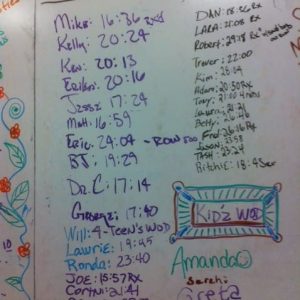 Mike: 16:36 RX
Kelly: 20:24
Ken: 20:13
Erika: 20:16
Jessi: 17:24
Matt: 16:59
Eric: 24:04 - ROW 500
BJ: 19:29
Dr. C: 17:14
George: 17:40
Will: 4-Teen's WOD
Lawrie: 19:45
Ronda: 23:40
JOE: 15:57 RX
Cortni: 21:41
DAN: 18:56 RX
LARA: 21:08 RX
Robert: 29:18 RX
Trever: 22:00
Kim: 25:04
Adam: 20:50 RX
Tory: 21:00
Laura: 21:21
Betty: 26:46
Fred: 26:16 RX
Jason: 23:58
TASH: 23:24
Ritchie: 18:45
Kid'z WOD
Amanda
Sarchi
Greta